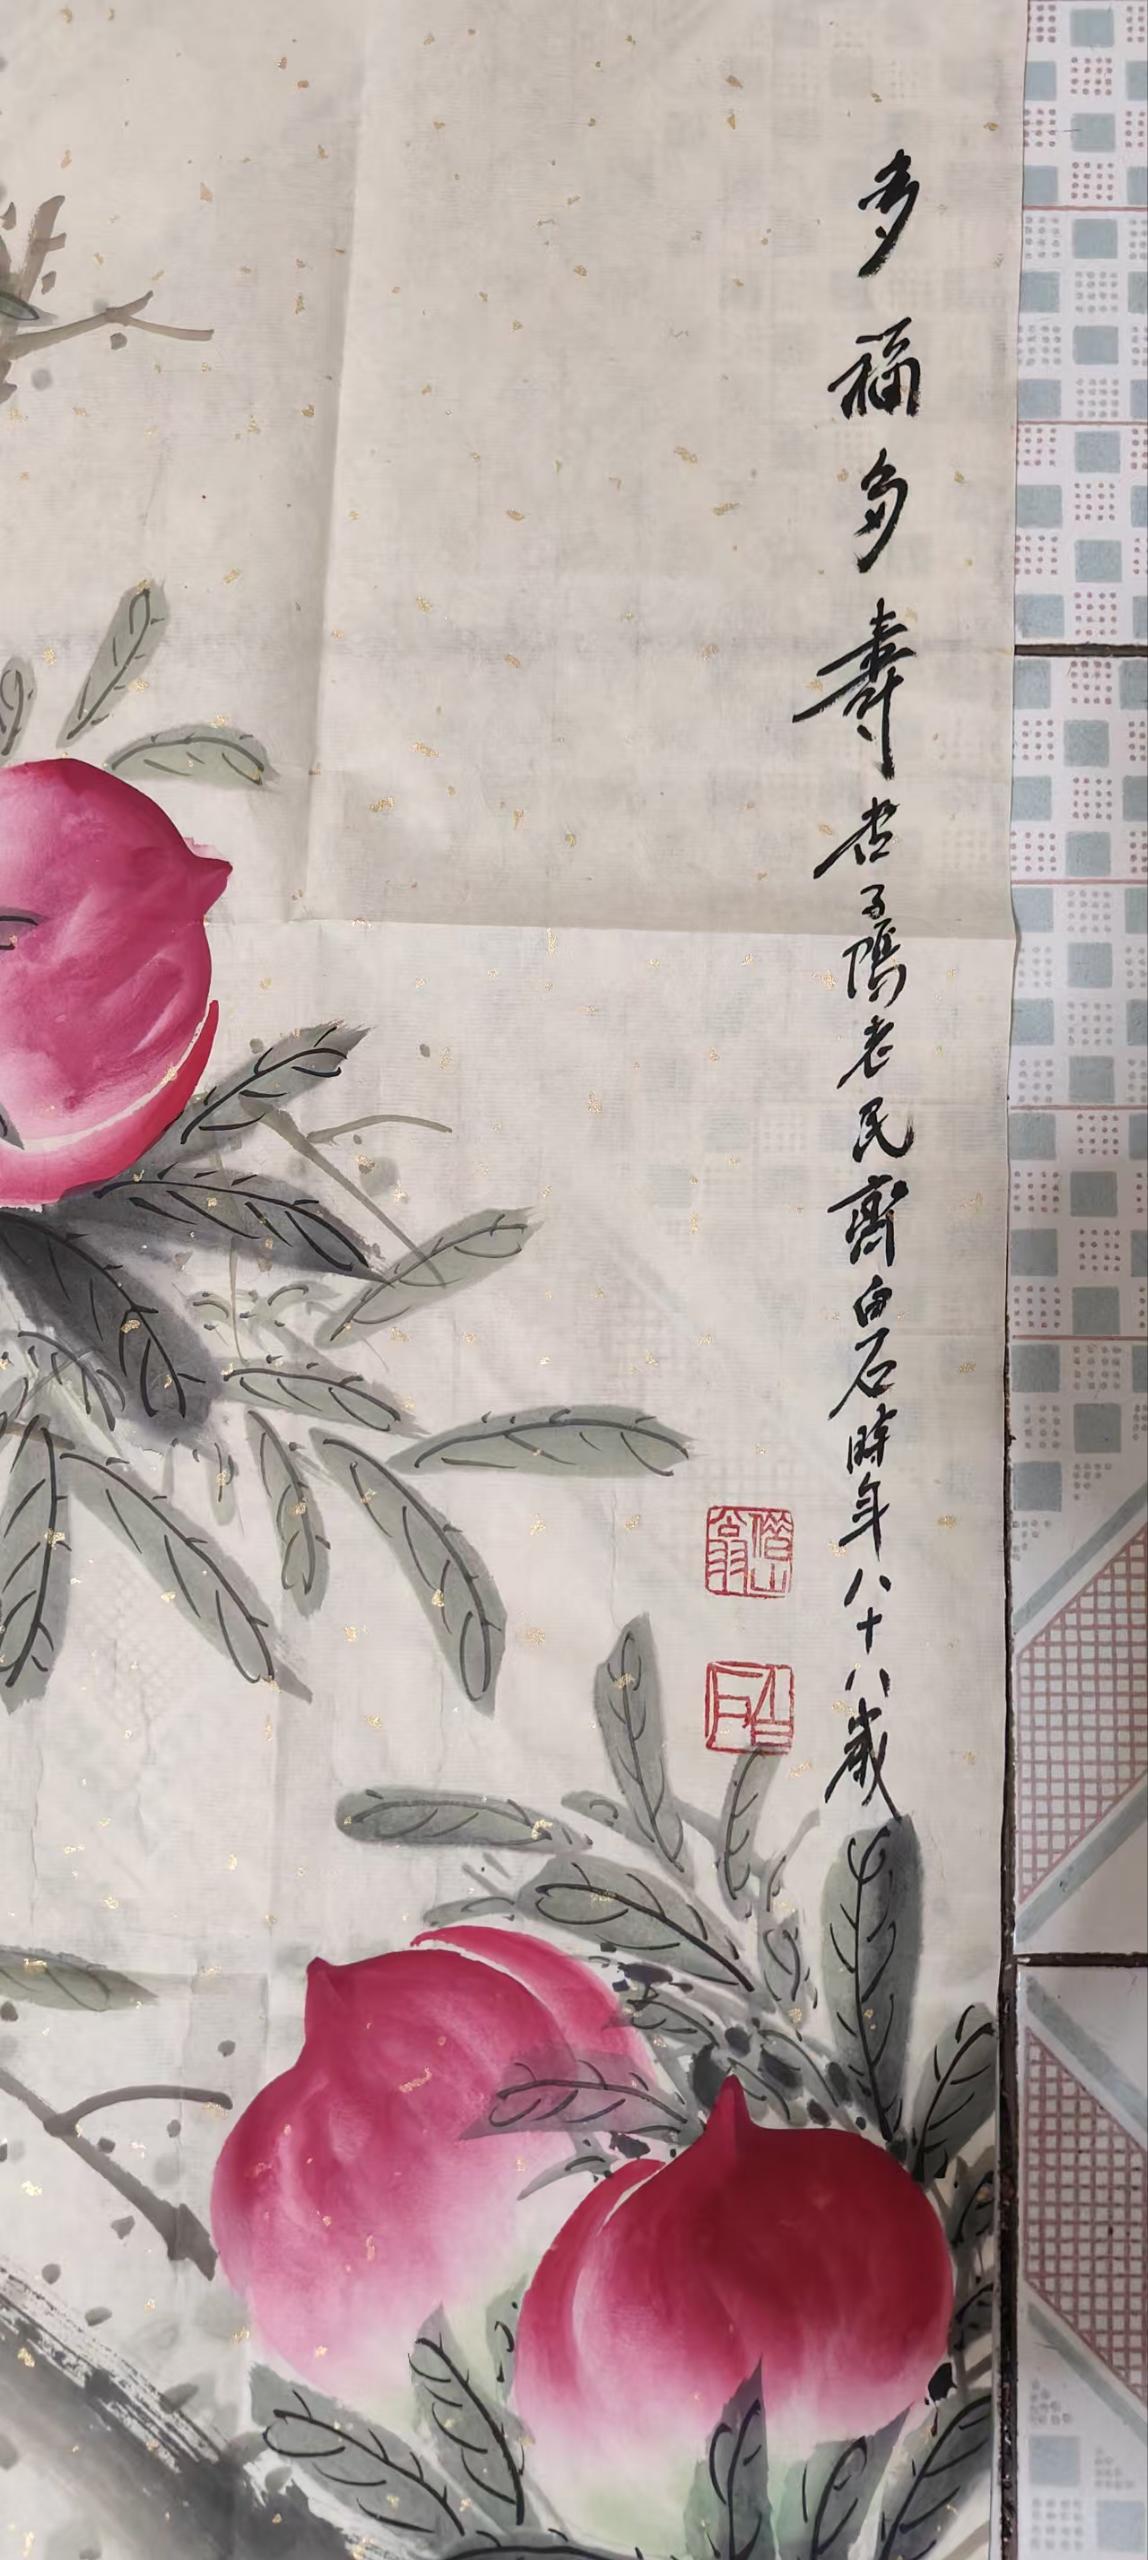 多福多壽杏子隖老民齊白石時年八十八歲
借山翁
木石